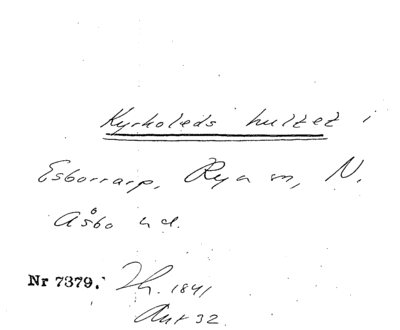 Kyrkoleds hultet i
Esborrarp, Rya sn, N.
Åsbo hd.
Nr 7379. Th. 1841
Ant 32.